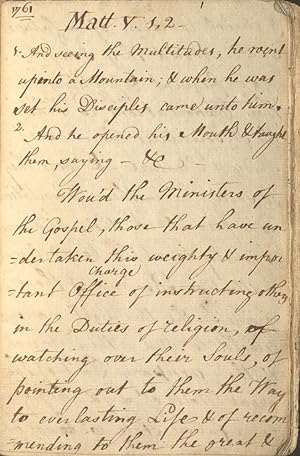 1761
1
Matt V. 1, 2 -
1. And seeing the Multitudes, he went
up into a Mountain; & when he was
set his Disciples came unto him.
2. And he opened his Mouth & taught
them, saying - &c
Wou'd the Ministers of
the Gospel, those that have un
=dertaken this weighty & impor
Charge
=tant Office of instructing others
in the Duties of religion, of
watching over their Souls, of
pointing out to them the Way
to everlasting Life & of recom
=mending to them the great &